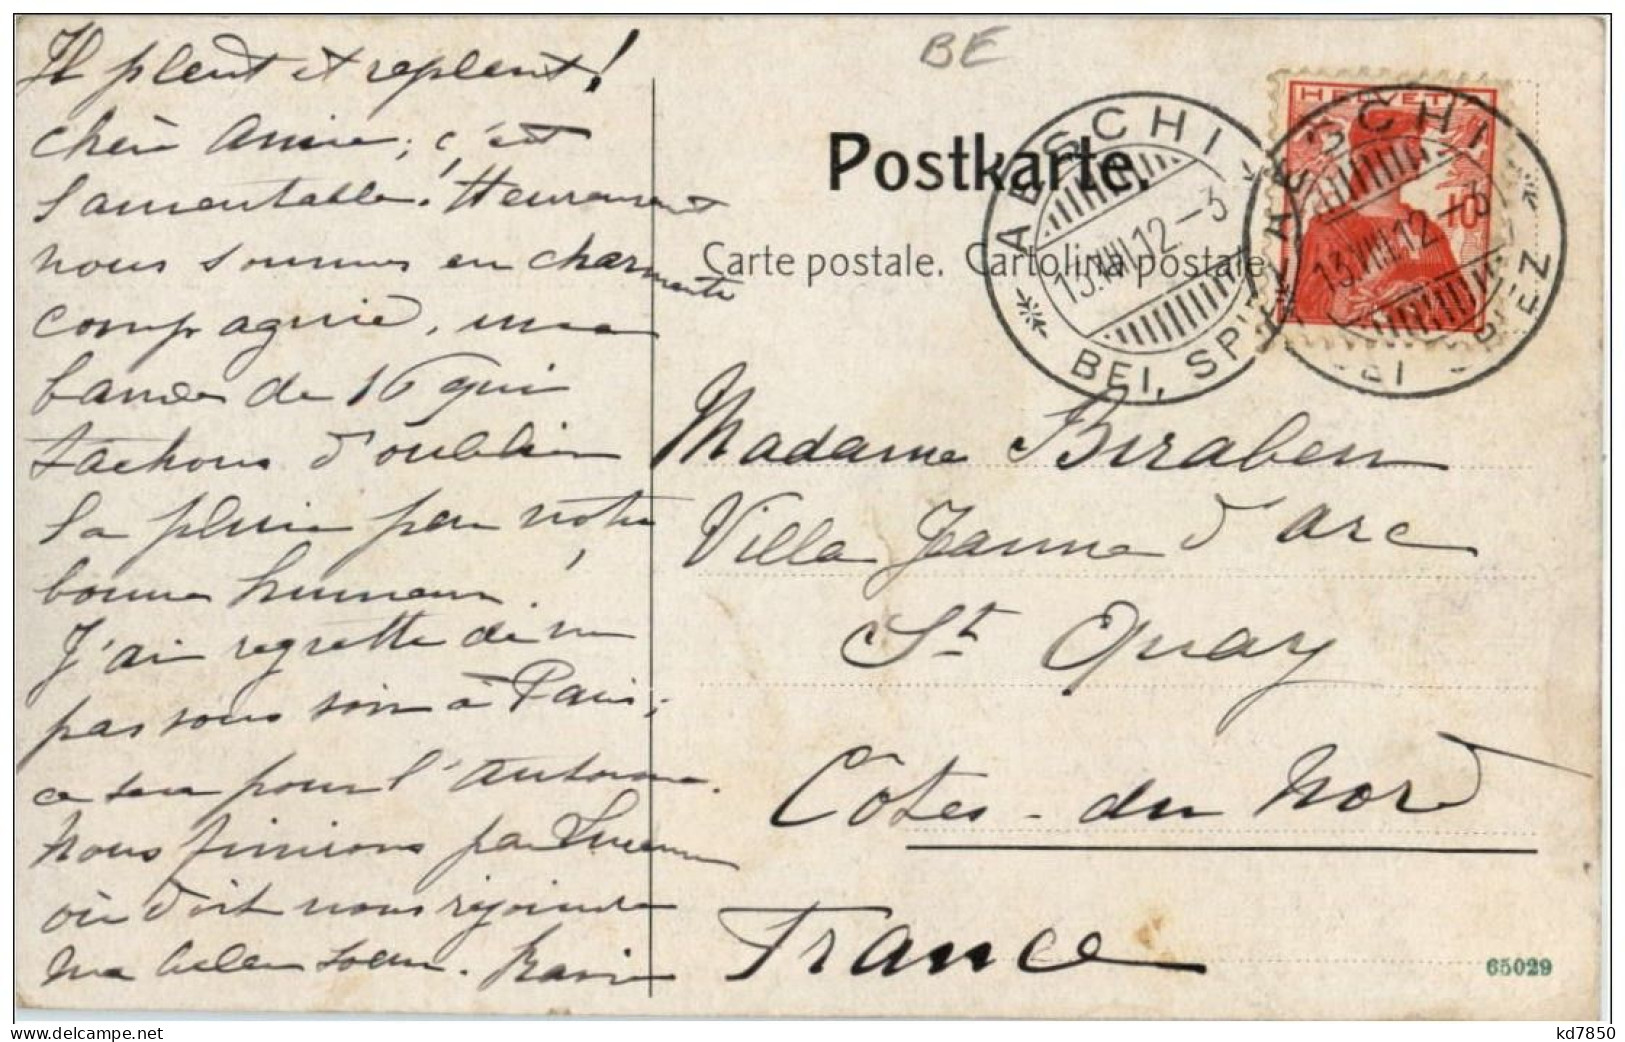 BE
Postkarte.
Carte postale. Cartolina postale
HELVETIA
10
AESCHI
13.VIII.12-3
BEI. SPIEZ
AESCHI
13.VIII.12-3
BEI SPIEZ
Il pleut et repleut!
chère Amie; c'est
lamentable! Heureusement
nous sommes en charmante
compagnie, une
bande de 16 qui
tâchons d'oublier
la pluie par notre
bonne humeur!
J'ai regretté de ne
pas vous voir à Paris;
ce sera pour l'automne.
Nous finirons par Lucerne
où doit nous rejoindre
ma belle soeur.
Madame Biraben
Villa Jeanne d'arc
St Quay
Côtes-du Nord
France
65029
kd7850